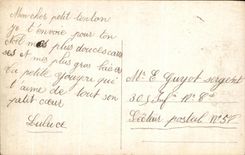 Mon cher petit tonton
je t'envoie pour ton
mes plus douces cares
ses et mes plus gros
Ta petite qui
t'aime de tout son
petit cœur
Luluce
M. E Guyot sergent
Secteur postal N° 54